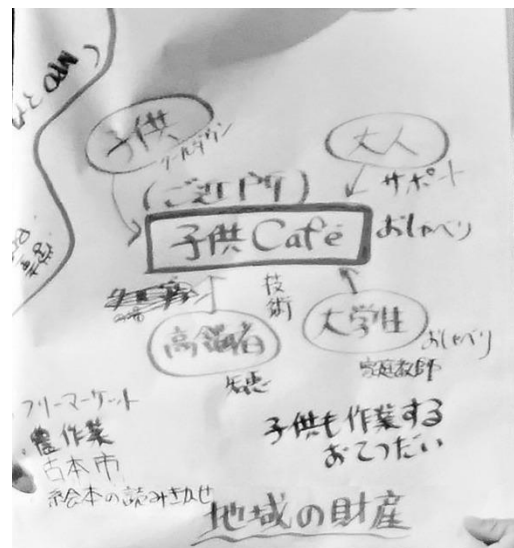 NPO
子供
クールダウン
大人
サポート
(ご近所)
子供Café
おしゃべり
技術
高齢者
知恵
大学生
おしゃべり
家庭教師
フリーマーケット
農作業
古本市
絵本の読みきかせ
子供も作業する
おてつだい
地域の財産